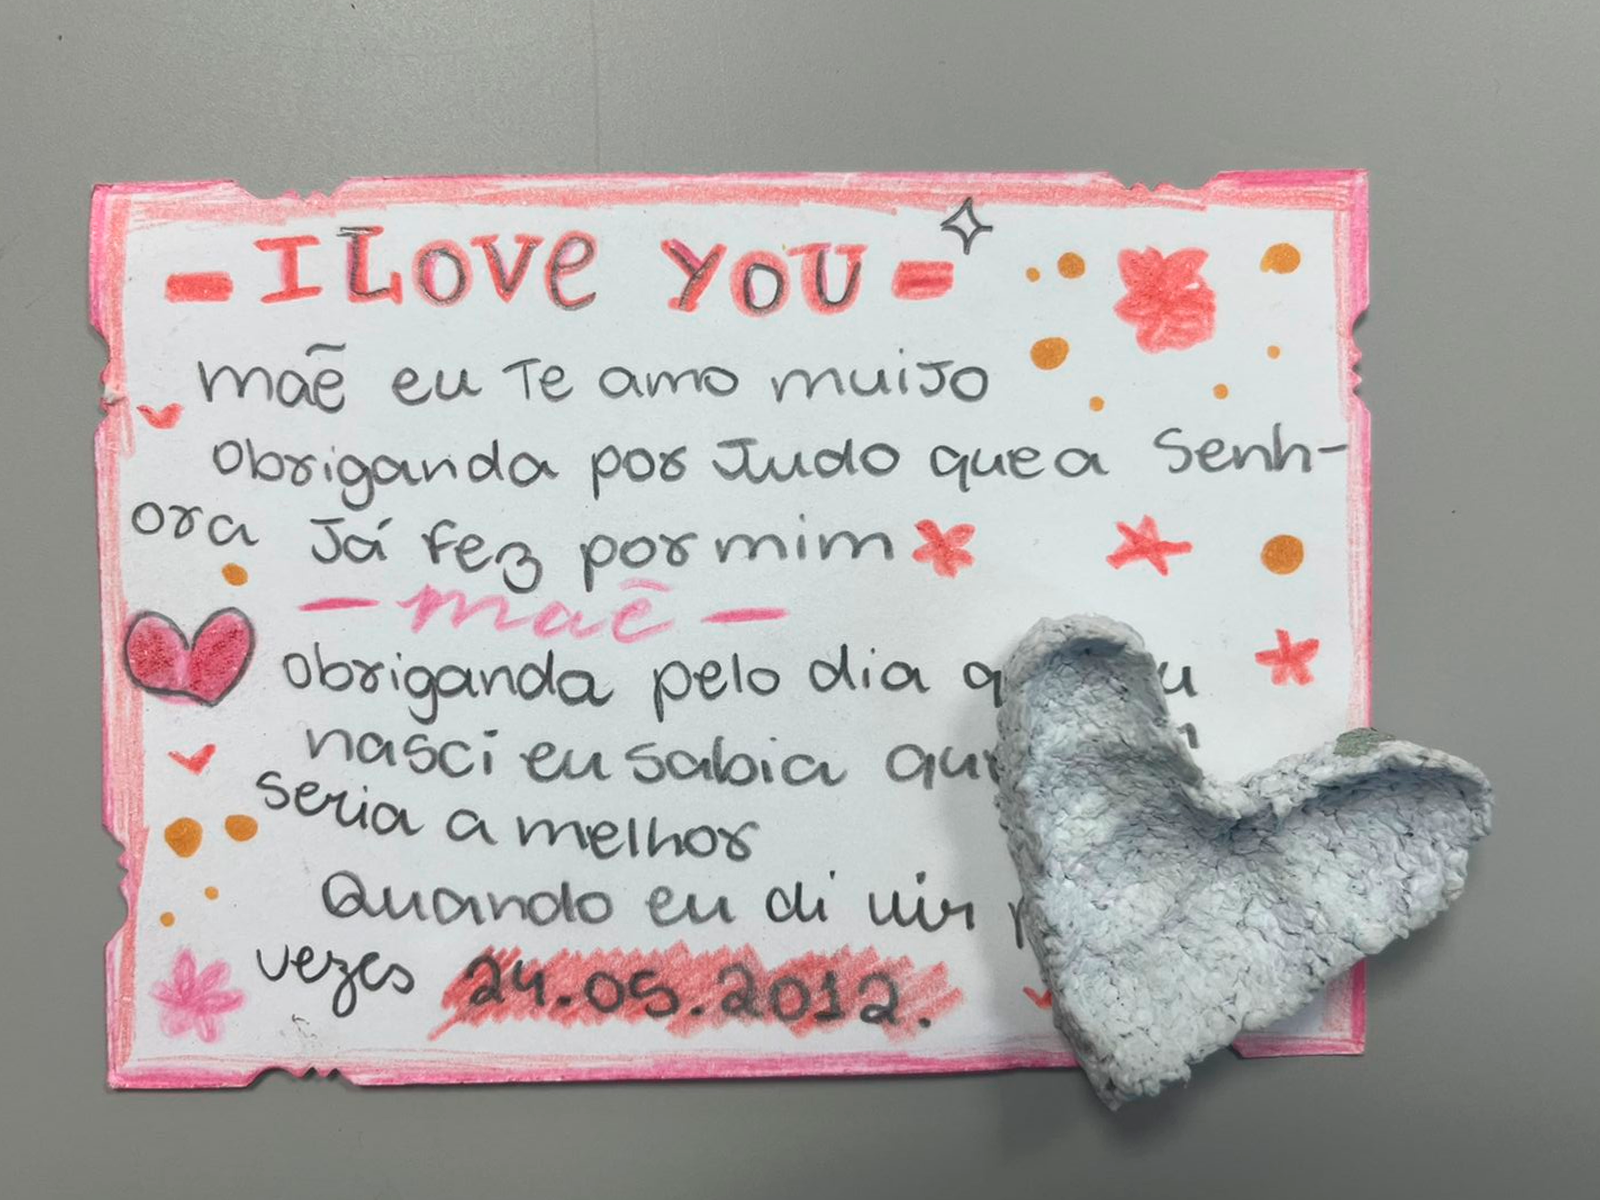 I LOVe YOU
maẽ eu Te amo muiJo
obriganda por Judo que a Senh-
ora Já fez por mim
maẽ
obriganda pelo dia
nasci eu sabia
seria a melhor
Quando eu di uir
vezes 24.05.2012.